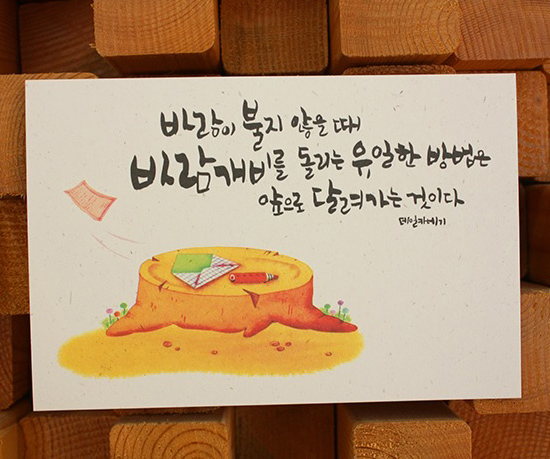 바람이 불지 않을 때
바람개비를 돌리는 유일한 방법은
앞으로 달려가는 것이다
데일카네기